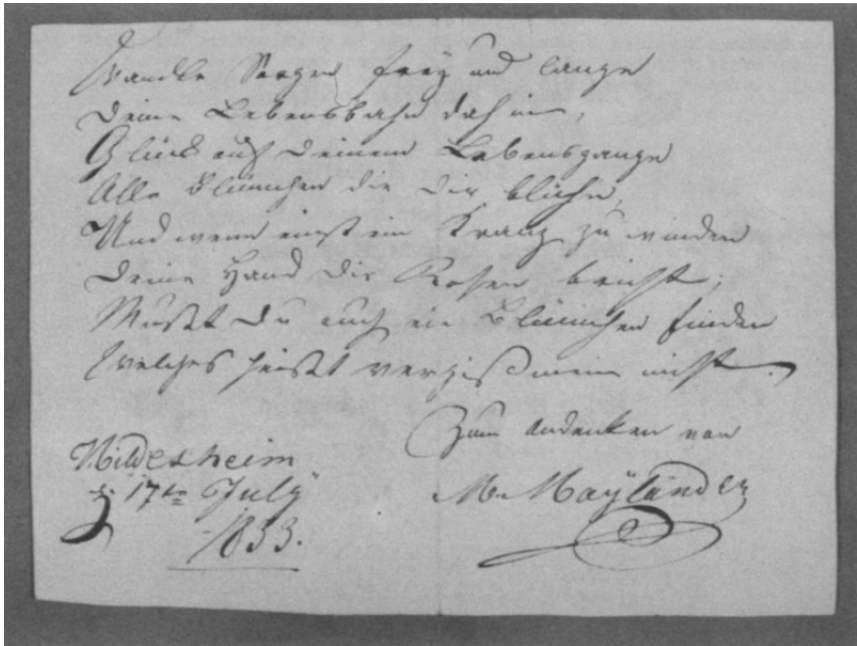 Wandle Sorgen frey und lange
Deine Lebensbahn dahin,
Glück auf Deinem Lebensgange
Alle Blümchen die Dir blühn,
Und wenn einst ein Kranz zu winden
Deine Hand die Rosen bricht;
Mußt Du auch ein Blümchen finden
Welches heißt vergiß mein nicht.
Zum Andenken von
M. Mayländer
Hildesheim
d. 17ten July
1833.